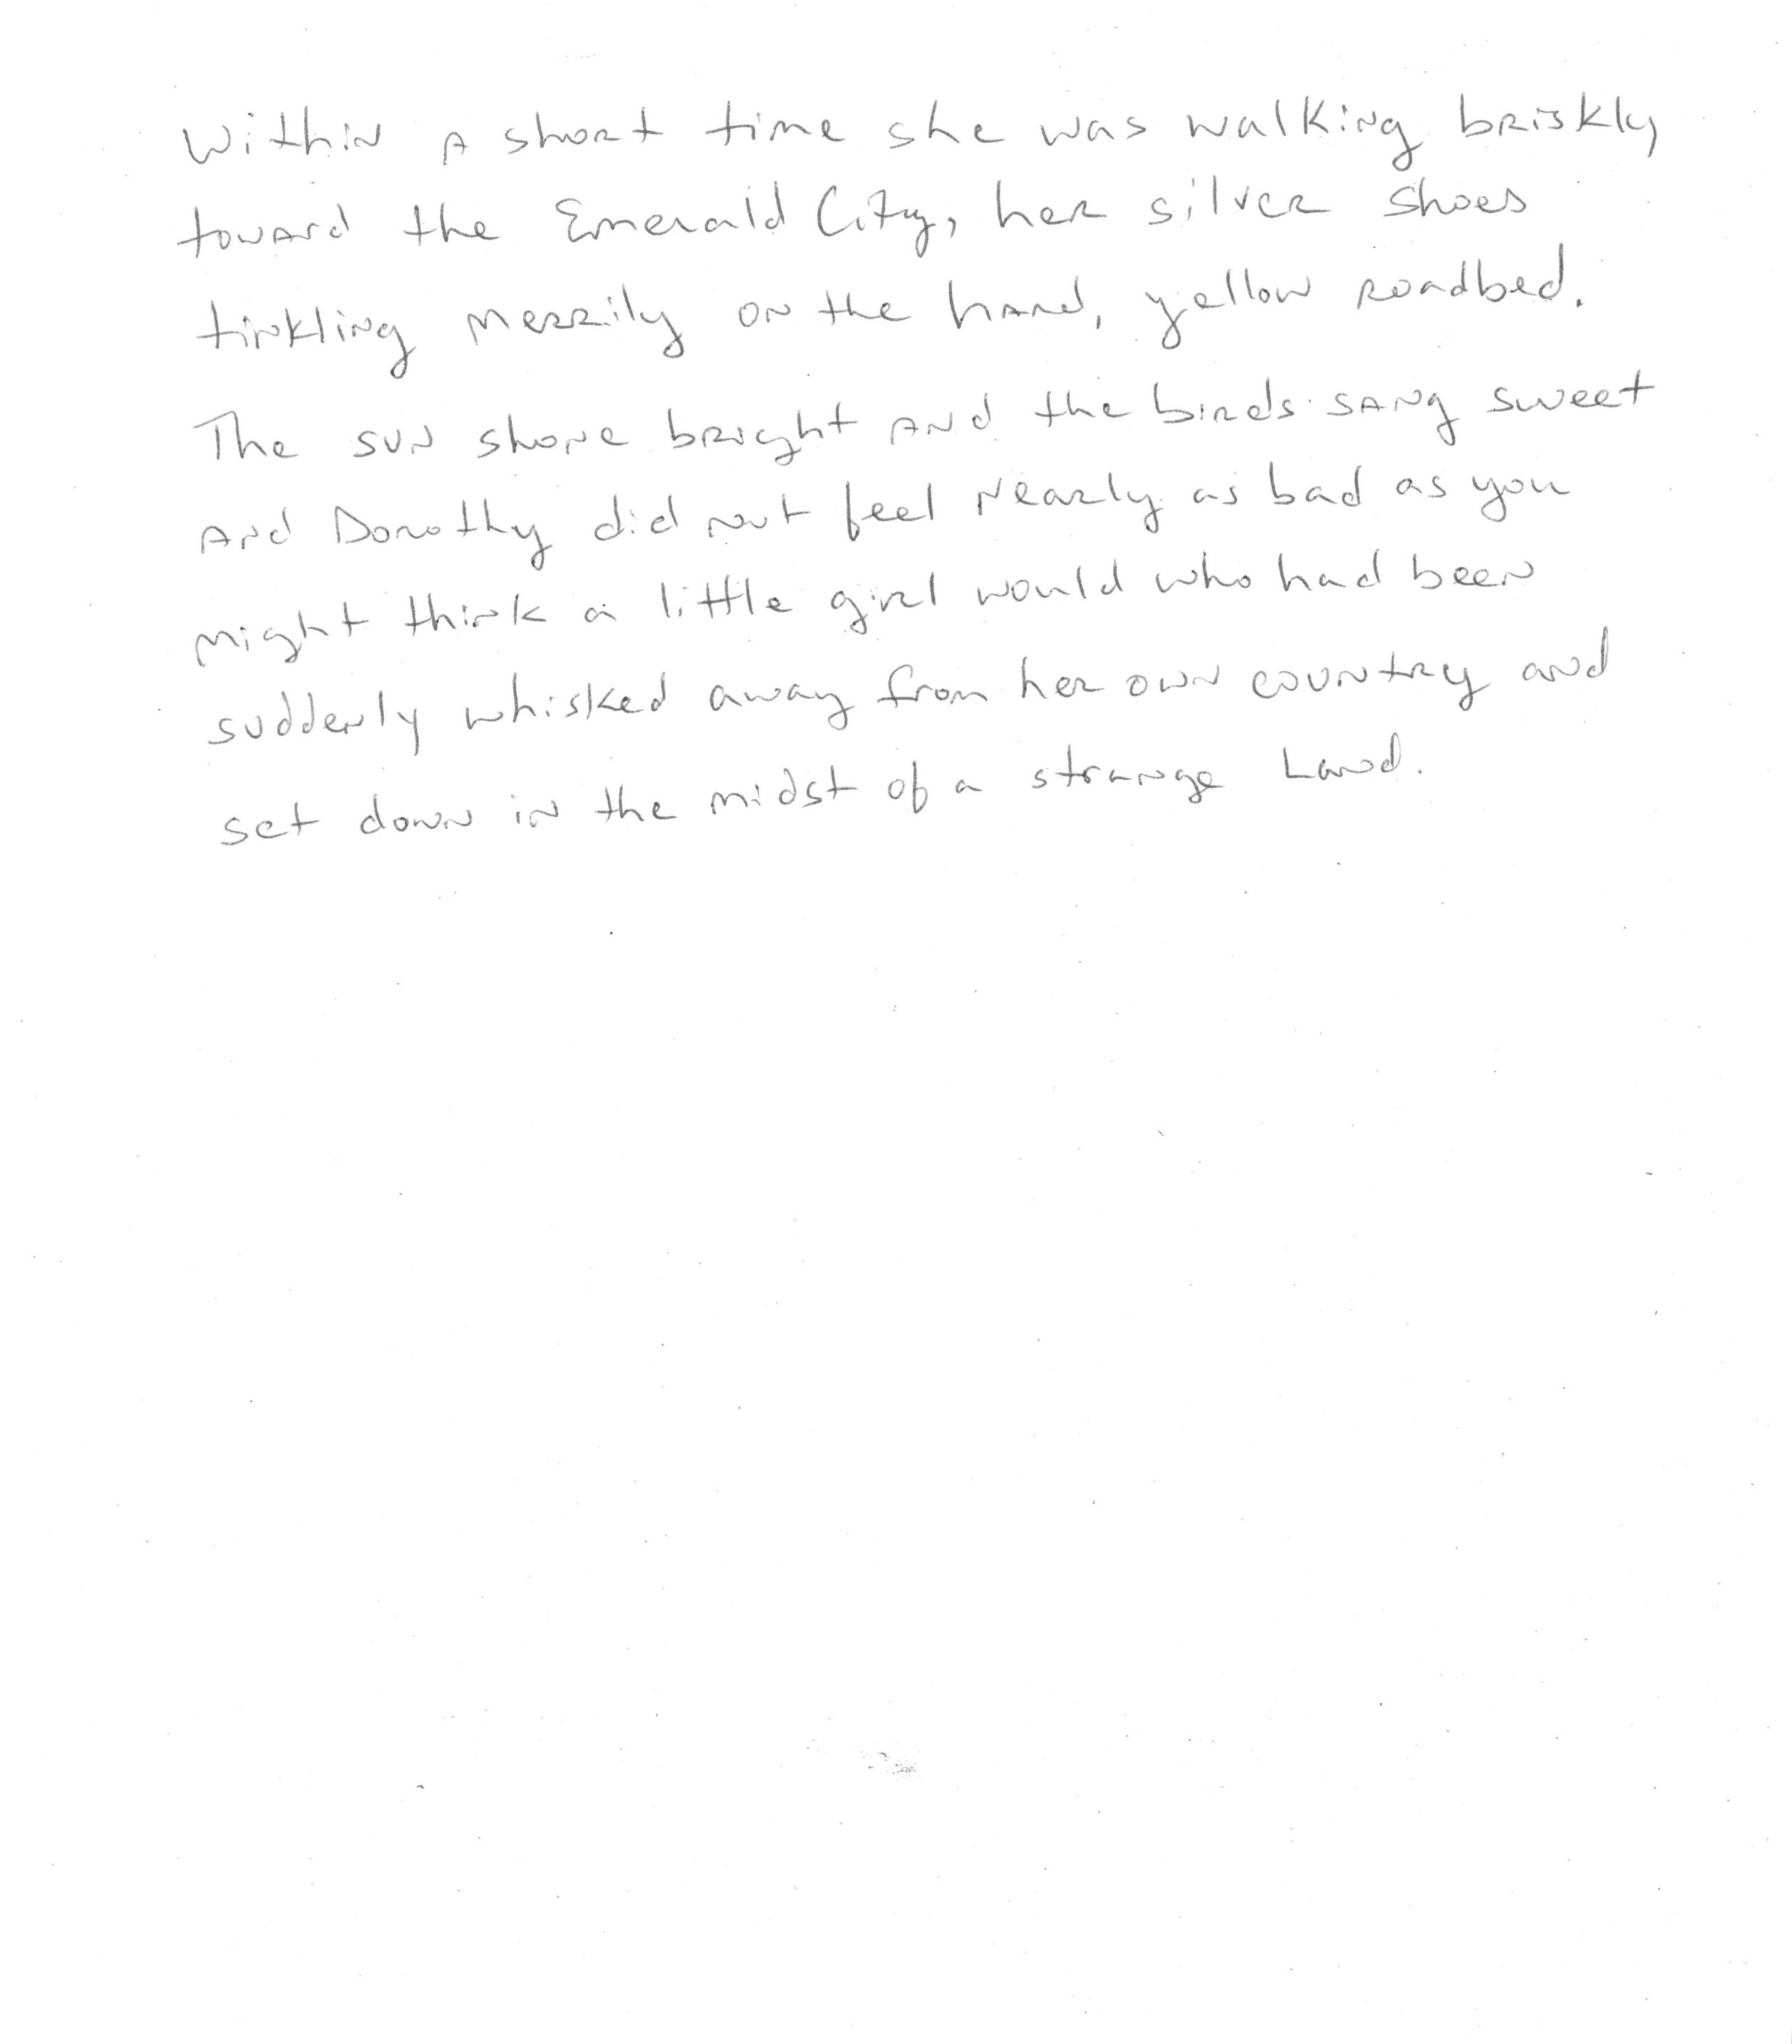 Within a short time she was walking briskly
toward the Emerald City, her silver shoes
tinkling merrily on the hard, yellow roadbed.
The sun shone bright and the birds sang sweet
and Dorothy did not feel nearly as bad as you
might think a little girl would who had been
suddenly whisked away from her own country and
set down in the midst of a strange land.